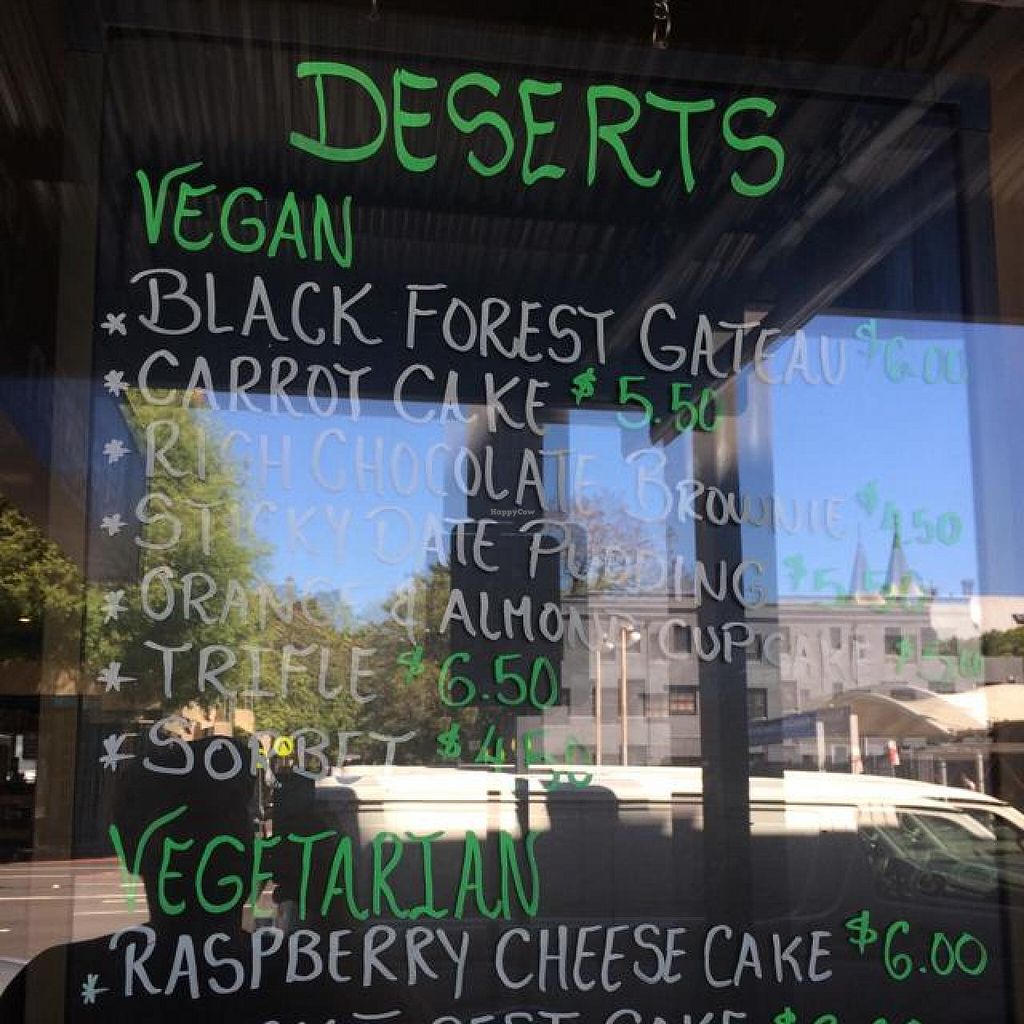 DESERTS
VEGAN
* BLACK FOREST GATEAU $6.00
* CARROT CAKE $5.50
* RICH CHOCOLATE BROWNIE $4.50
* STICKY DATE PUDDING $5.50
* ORANGE & ALMOND CUPCAKE
* TRIFLE $6.50
* SORBET $4.50
VEGETARIAN
* RASPBERRY CHEESE CAKE $6.00
CAKE
HappyCow